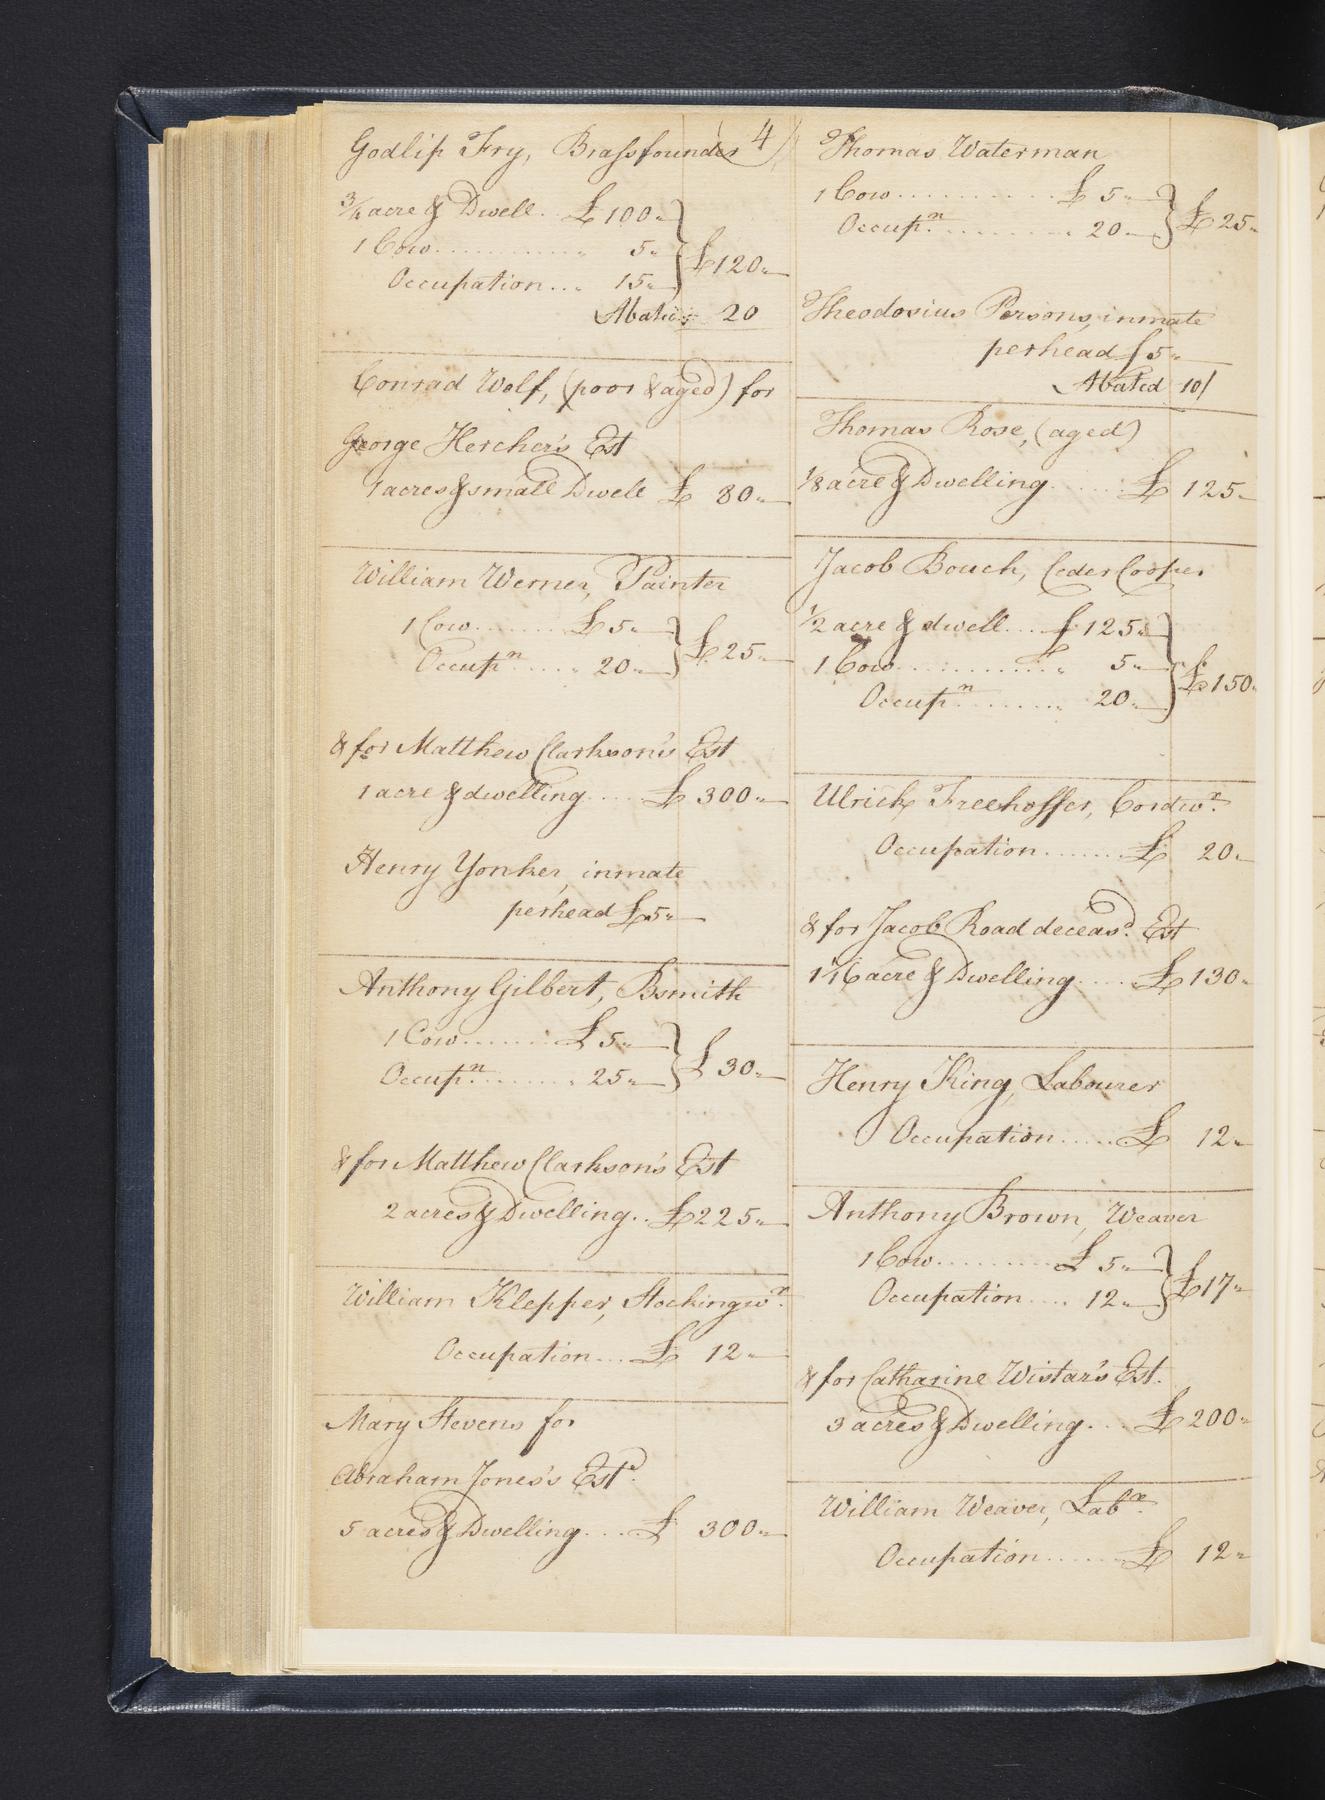 4
Godlip Fry, Brassfounder
3/4 acre & Dwell.. £100"
1 Cow............" 5"
Occupation..." 15"
£120"
Abated 20
Conrad Wolf, (poor & aged) for
George Hercher's Est
1 acres & small Dwell £ 80"
William Werner, Painter
1 Cow........£5"
Occupn....." 20"
£25"
& for Matthew Clarkson's Est
1 acre & dwelling.....£300"
Henry Yonker, inmate
perhead £5"
Anthony Gilbert, Bsmith
1 Cow........£5"
Occupn........" 25"
£30"
& for Matthew Clarkson's Est
2 acres & Dwelling..£225"
William Klepper, Stockingwr.
Occupation....£ 12"
Mary Stevens for
Abraham Jones's Estd.
5 acres & Dwelling....£ 300"
Thomas Waterman
1 Cow............£5"
Occupn.........." 20"
£25"
Theodosius Persons, inmate
perhead £5"
Abated 10/
Thomas Rose, (aged)
1/8 acre & Dwelling......£ 125"
Jacob Bouch, Ceder Cooper
1/2 acre & dwell....£125"
1 Cow............." 5"
Occupn........" 20"
£150"
Ulrick Freehoffer, Cordwr.
Occupation.......£ 20"
& for Jacob Road deceasd. Est
1/16 acre & Dwelling.....£130"
Henry King, Labourer
Occupation.....£ 12"
Anthony Brown, Weaver
1 Cow..........£5"
Occupation....." 12"
£17"
& for Catharine Wistar's Est.
3 acres & Dwelling....£200"
William Weaver, Labr.
Occupation......£ 12"